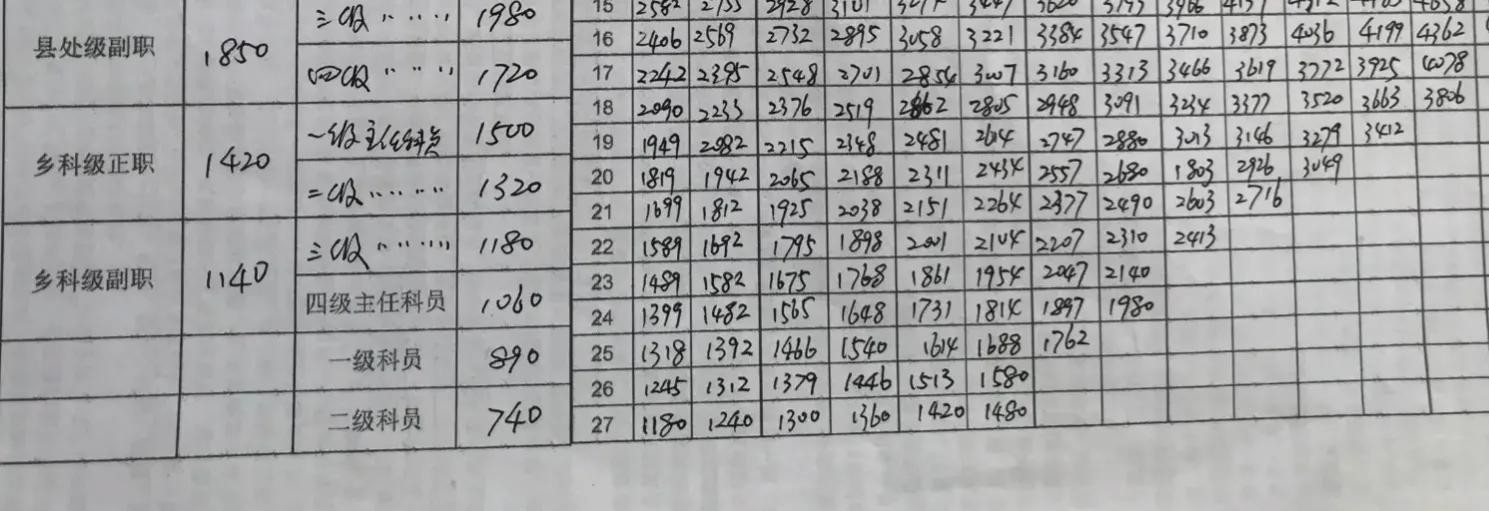 三级 〃 〃 〃 1980
县处级副职 1850
四级 〃 〃 〃 1720
乡科级正职 1420
一级主任科员 1500
二级 〃 〃 〃 1320
乡科级副职 1140
三级 〃 〃 〃 1180
四级主任科员 1060
一级科员 890
二级科员 740
15 2582 2755 2928 3101
16 2406 2569 2732 2895 3058 3221 3384 3547 3710 3873 4036 4199 4362
17 2242 2395 2548 2701 2854 3007 3160 3313 3466 3619 3772 3925 4078
18 2090 2233 2376 2519 2662 2805 2948 3091 3234 3377 3520 3663 3806
19 1949 2082 2215 2348 2481 2614 2747 2880 3013 3146 3279 3412
20 1819 1942 2065 2188 2311 2434 2557 2680 1803 2926 3049
21 1699 1812 1925 2038 2151 2264 2377 2490 2603 2716
22 1589 1692 1795 1898 2001 2104 2207 2310 2413
23 1489 1582 1675 1768 1861 1954 2047 2140
24 1399 1482 1565 1648 1731 1814 1897 1980
25 1318 1392 1466 1540 1614 1688 1762
26 1245 1312 1379 1446 1513 1580
27 1180 1240 1300 1360 1420 1480